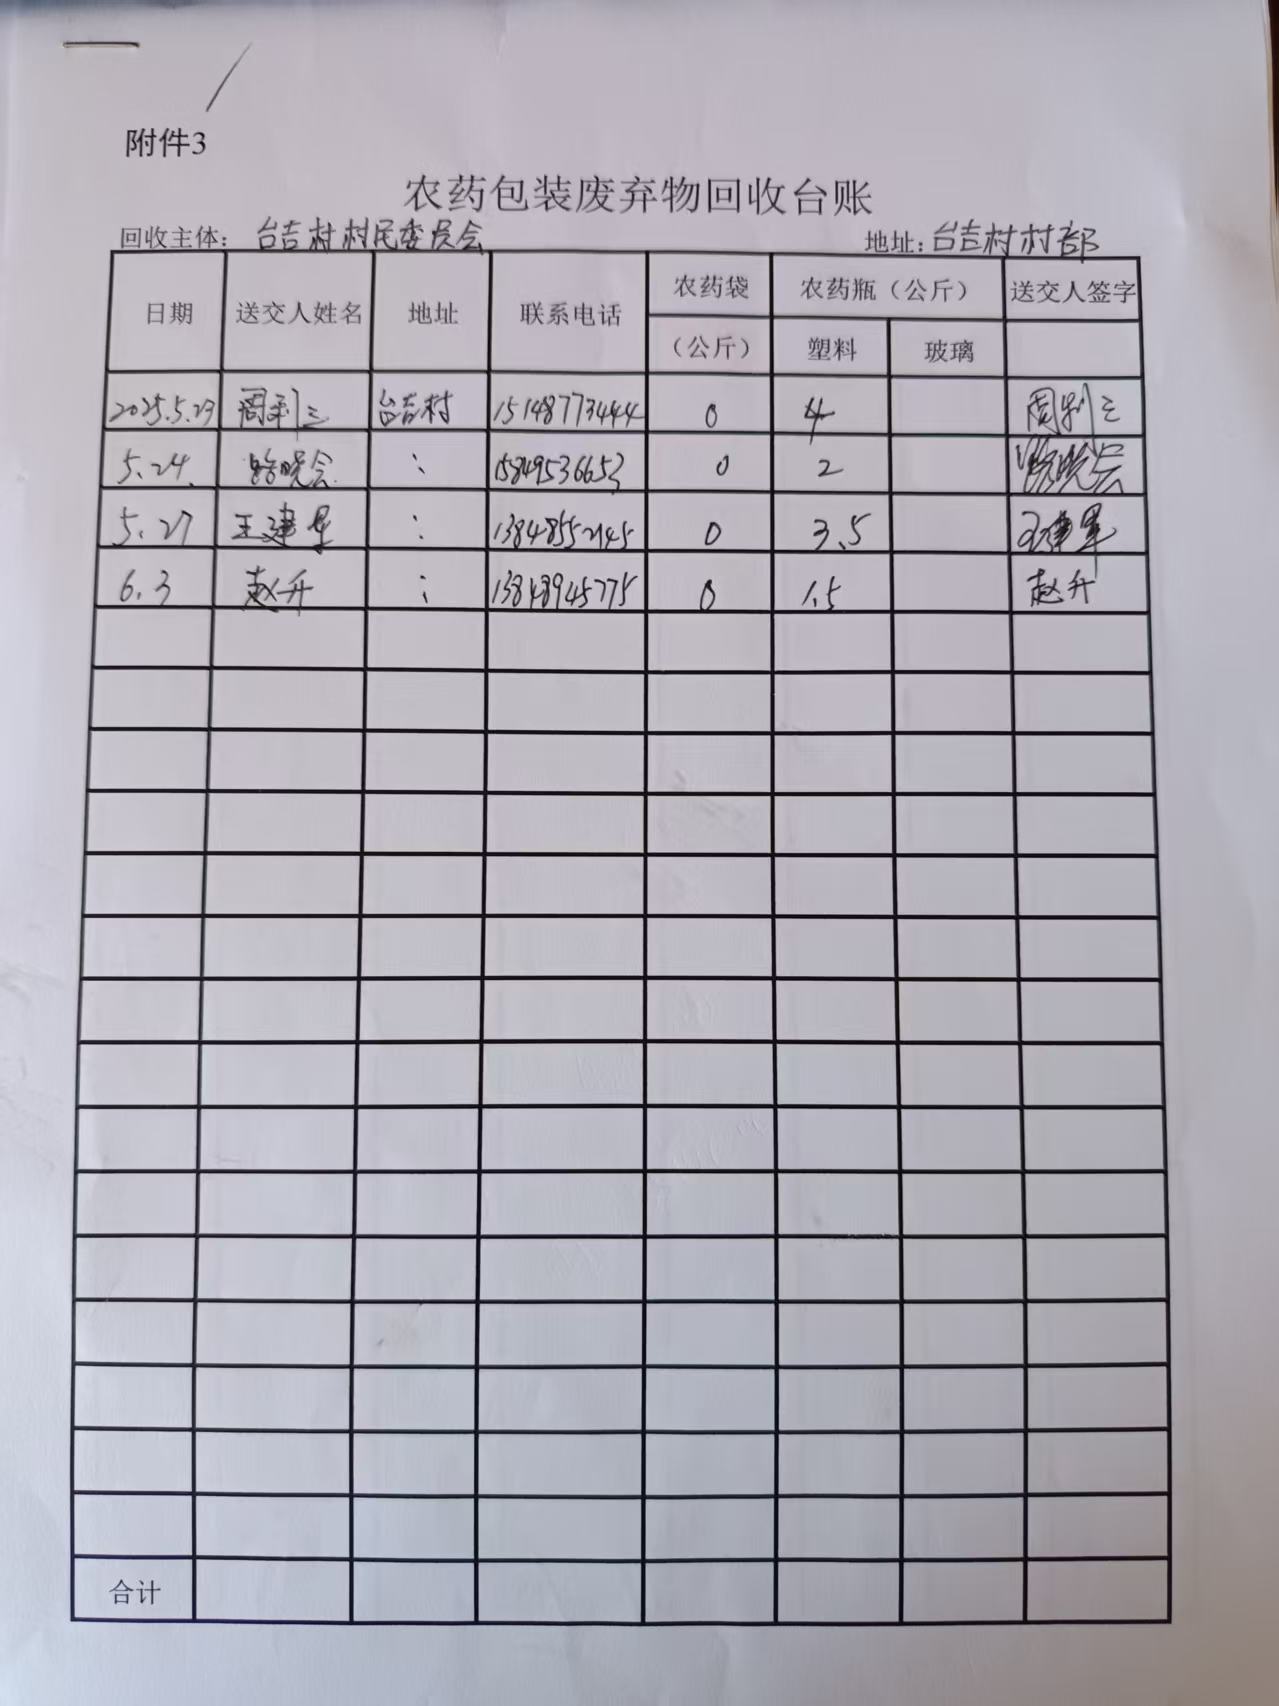 附件3
农药包装废弃物回收台账
回收主体：台吉村村民委员会 地址：台吉村村部
日期 送交人姓名 地址 联系电话 农药袋（公斤） 农药瓶（公斤） 送交人签字
塑料 玻璃
2025.5.23 周利三 台吉村 15148773444 0 4 周利三
5.24. 晓会 15849536653 0 2 晓会
5.27 王建军 13848552745 0 3.5 王建军
6.3 赵升 13848945775 0 1.5 赵升
合计